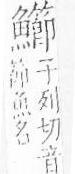 鰤子列切音
節魚名